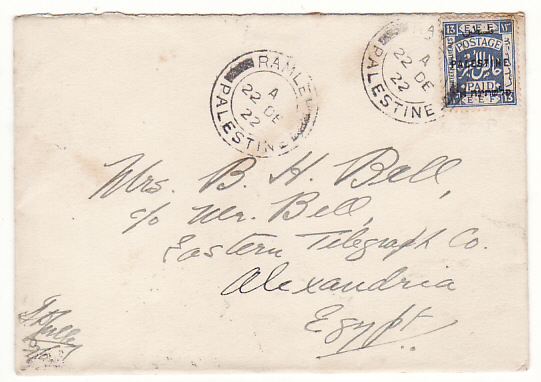 RAMLEH
A
22 DE
22
PALESTINE
A
22 DE
22
PALESTINE
13 E.E.F. ١٣
POSTAGE
PALESTINE
PAID
13 E.E.F. 13
Mrs. B. H. Bell,
c/o Mr. Bell,
Eastern Telegraph Co.
Alexandria
Egypt.